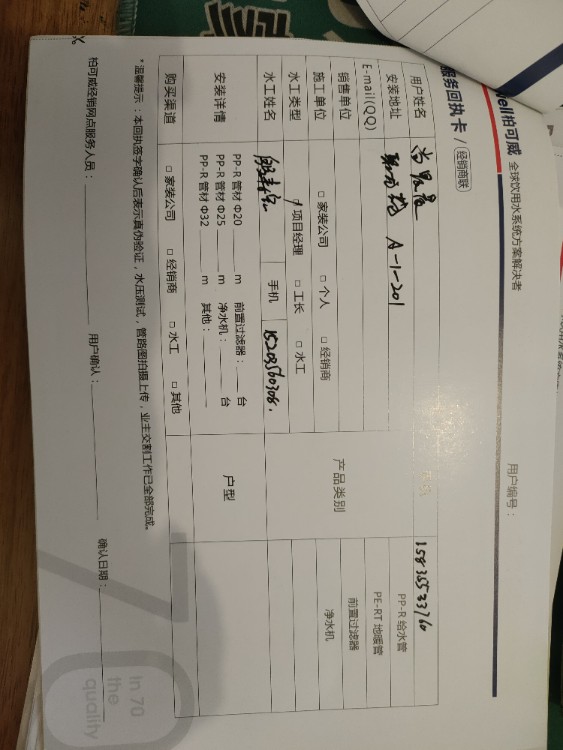 ell柏可威 全球饮用水系统方案解决者
用户编号：
服务回执卡 / 经销商联
用户姓名 15836533760
安装地址 A-1-201
E-mail(QQ)
销售单位
施工单位 □ 家装公司 □ 个人 □ 经销商
水工类型 项目经理 □ 工长 □ 水工
水工姓名 手机 15203560308
产品类别
PP-R 给水管
PE-RT 地暖管
前置过滤器
净水机
安装详情
PP-R 管材 Φ20 ____ m 前置过滤器：____ 台
PP-R 管材 Φ25 ____ m 净水机：____ 台
PP-R 管材 Φ32 ____ m 其他：____
户型
购买渠道 □ 家装公司 □ 经销商 □ 水工 □ 其他
*温馨提示：本回执签字确认后表示真伪验证，水压测试，管路图拍摄上传，业主交割工作已全部完成。
柏可威经销网点服务人员：____ 用户确认：____ 确认日期：____
In 70
the
quality